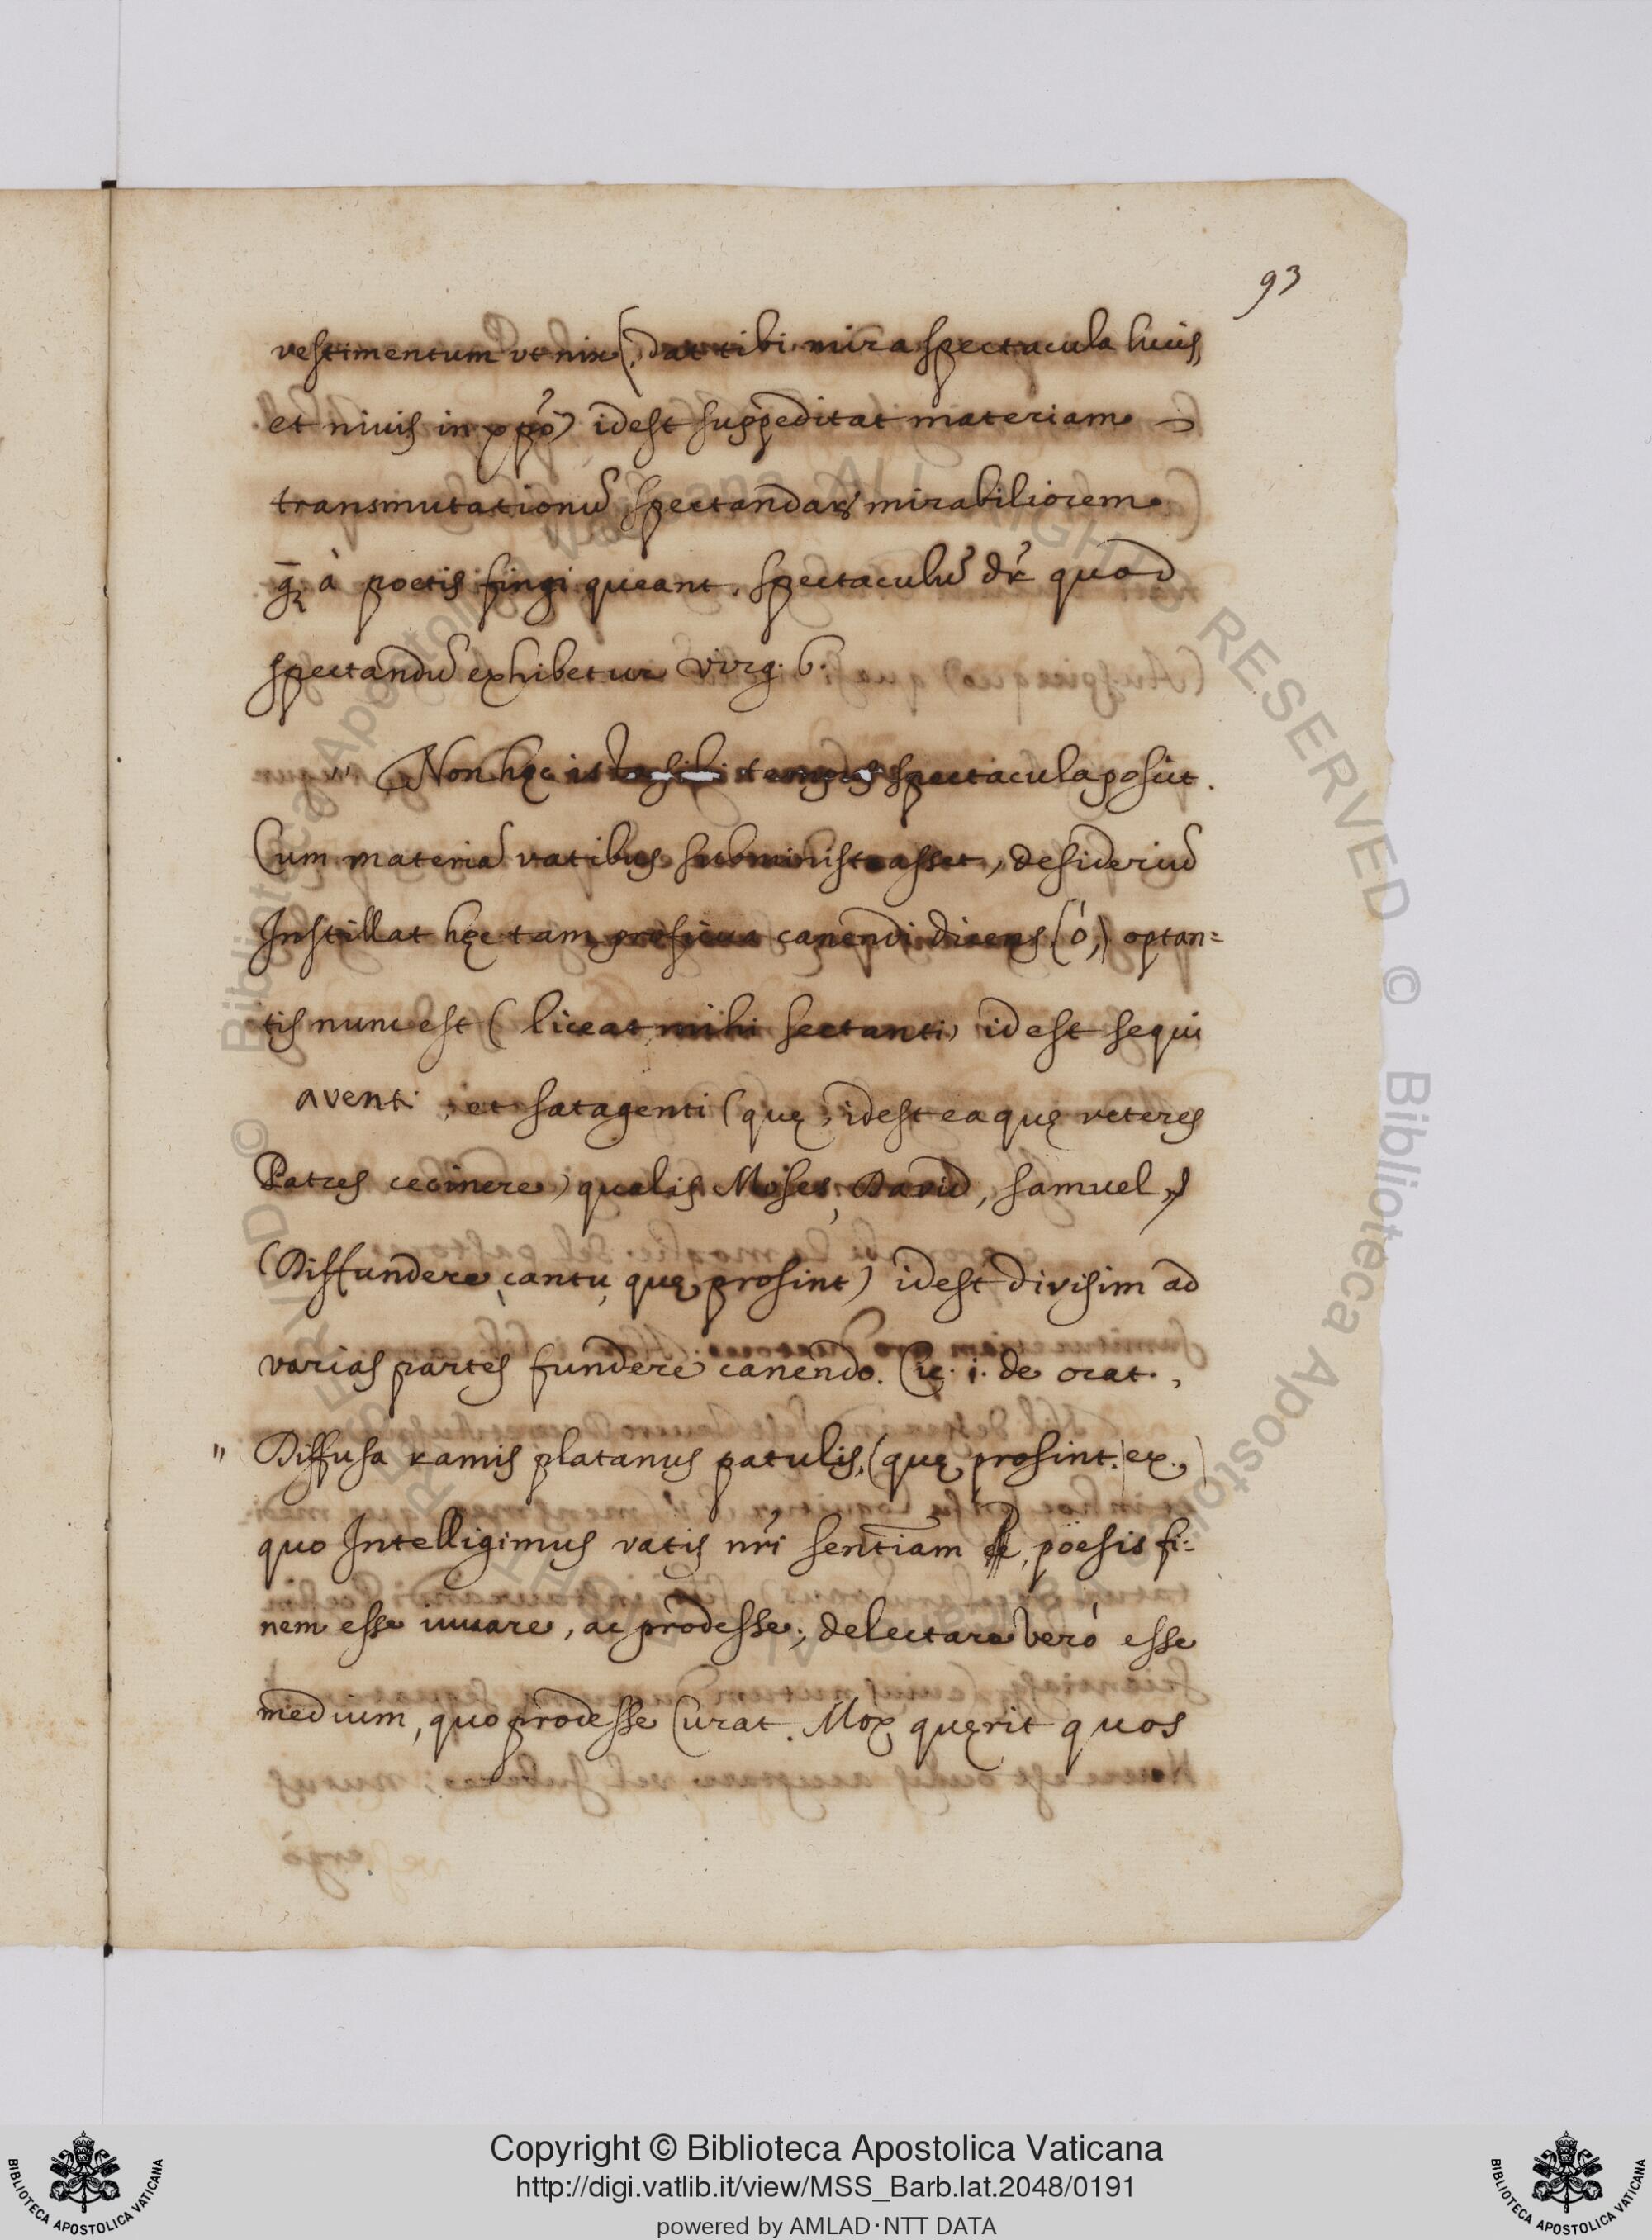 93
vestimentum vt nix (dat tibi mira spectacula lucis,
et niuis in xpo) idest suppeditat materiam
transmutationū spectandar mirabiliorem
q̄ à poetis fingi queant. Spectaculū dr̄ quod
spectandū exhibetur virg. 6.
" Non hęc ista sibi tempus spectacula poscit.
Cum materiā vatibus subministrasset, desideriū
Instillat hęc tam proficua canendi dicens (ó,) optan=
tis nunc est (liceat mihi sectanti) id est sequi
aventi et satagenti (quę, idest ea quę veteres
Patres cecinere) qualis Moses, David, Samuel,
(Diffundere cantu, quę prosint) idest divisim ad
varias partes fundere canendo. Cic. i. de orat.,
" Diffusa ramis platanus patulis, (quę prosint) ex,
quo Intelligimus vatis nr̄i sentiam poësis fi=
nem esse iuuare, ac prodesse; delectare veró esse
medium, quo prodesse Curat. Mox quęrit quos
Copyright © Biblioteca Apostolica Vaticana
http://digi.vatlib.it/view/MSS_Barb.lat.2048/0191
powered by AMLAD·NTT DATA
BIBLIOTECA APOSTOLICA VATICANA
BIBLIOTECA APOSTOLICA VATICANA